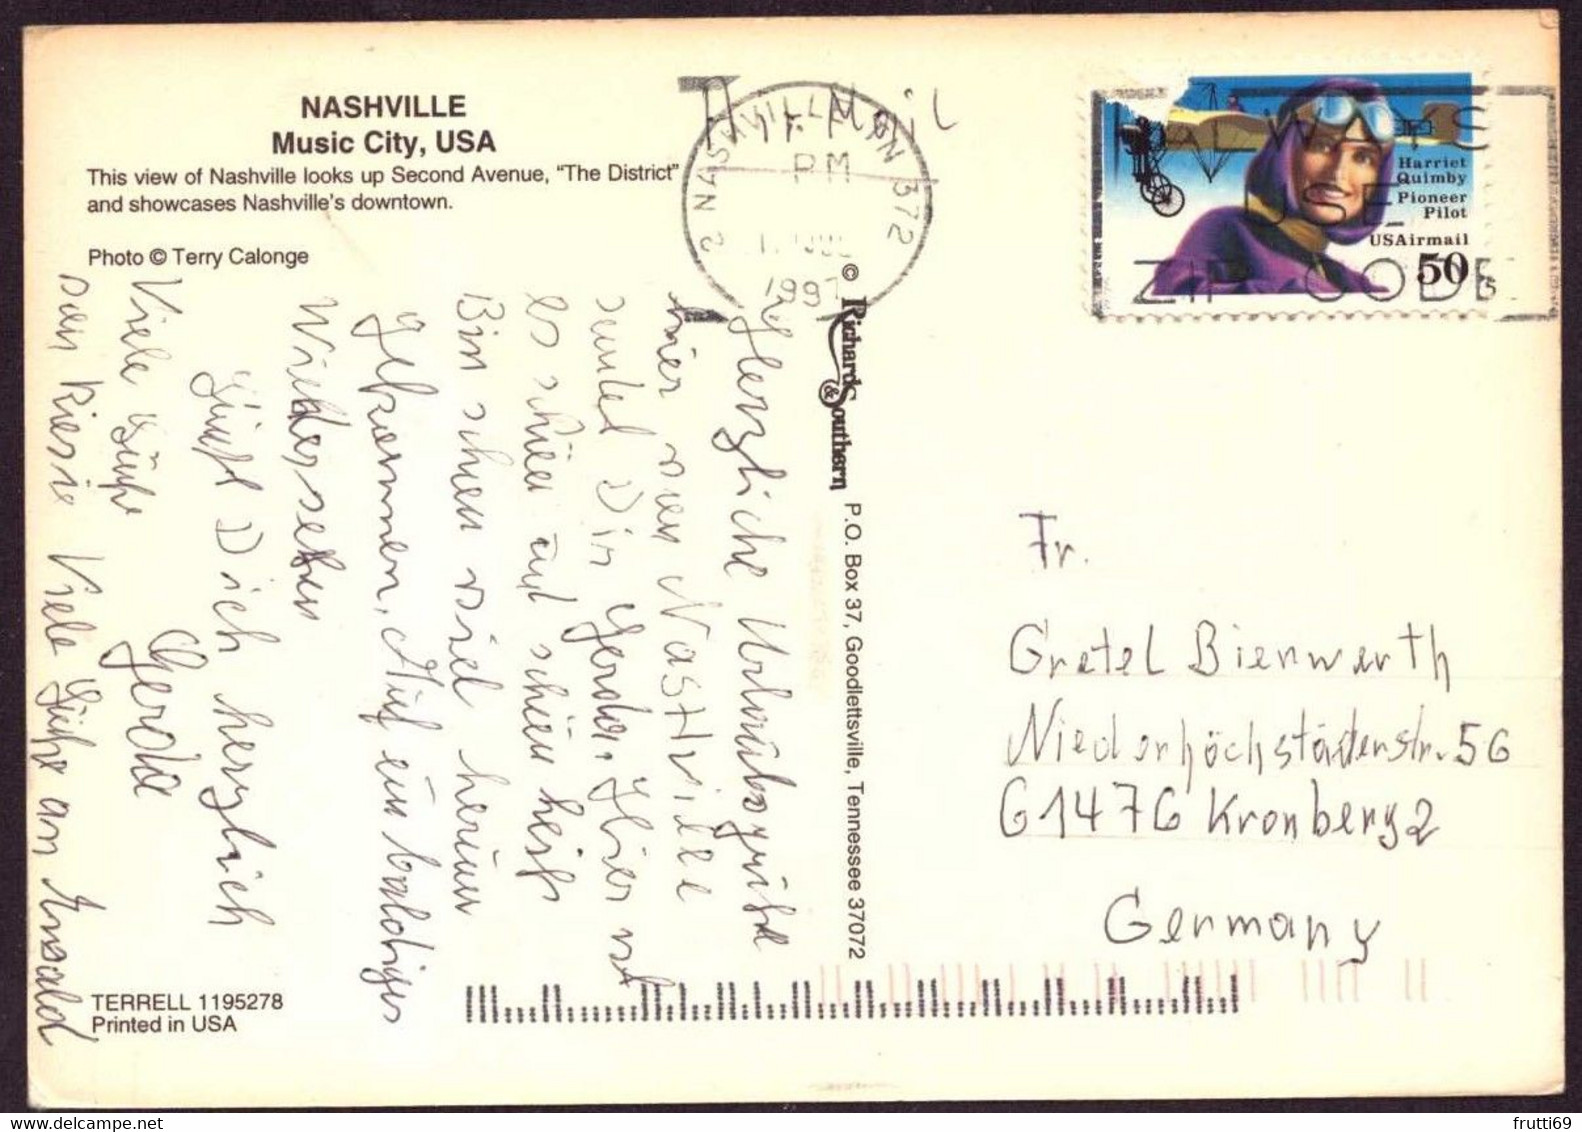 NASHVILLE
Music City, USA
This view of Nashville looks up Second Avenue, "The District"
and showcases Nashville's downtown.
Photo © Terry Calonge
Air Mail
NASHVILLE TN 372
PM
1997
ALWAYS
USE
ZIP CODE
Harriet
Quimby
Pioneer
Pilot
USAirmail
50
© Richards & Southern P.O. Box 37, Goodlettsville, Tennessee 37072
Herzliche Urlaubsgrüße
hier von Nashville
sendet Dir Gerda. Hier ist
es schön und schön heiß
Bin schon viel herum
gekommen, Auf ein baldiges
Wiedersehen
Grüßt Dich herzlich
Gerda
Viele Grüße
von Viele Grüße an
Fr.
Gretel Bienwerth
Niederhöchstädterstr. 56
61476 Kronberg 2
Germany
TERRELL 1195278
Printed in USA
frutti69